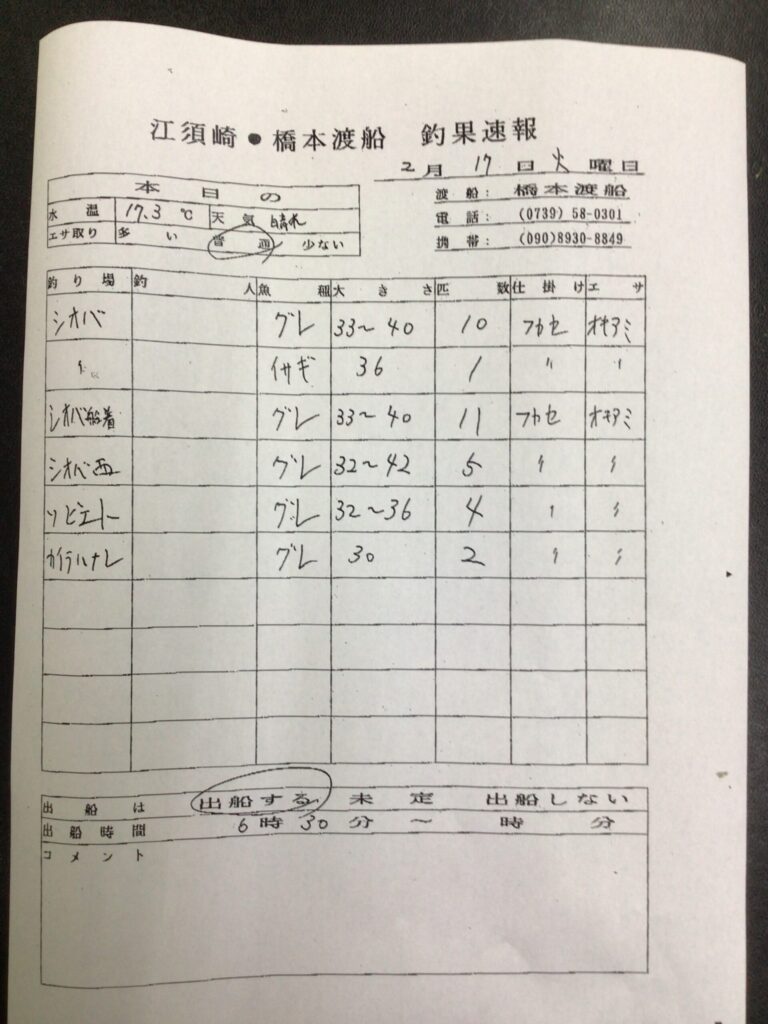 江須崎●橋本渡船 釣果速報
2月 17日 火曜日
本日の
水温 17.3 ℃ 天気 晴れ
エサ取り 多い 普通 少ない
渡船: 橋本渡船
電話: (0739) 58-0301
携帯: (090)8930-8849
釣り場 釣人 魚種 大きさ 匹数 仕掛け エサ
シオバ グレ 33～40 10 フカセ オキアミ
〃 イサギ 36 1 〃 〃
シオバ船着 グレ 33～40 11 フカセ オキアミ
シオバ西 グレ 32～42 5 〃 〃
ソビエトー グレ 32～36 4 〃 〃
カイテハナレ グレ 30 2 〃 〃
出船は 出船する 未定 出船しない
出船時間 6時30分～ 時 分
コメント